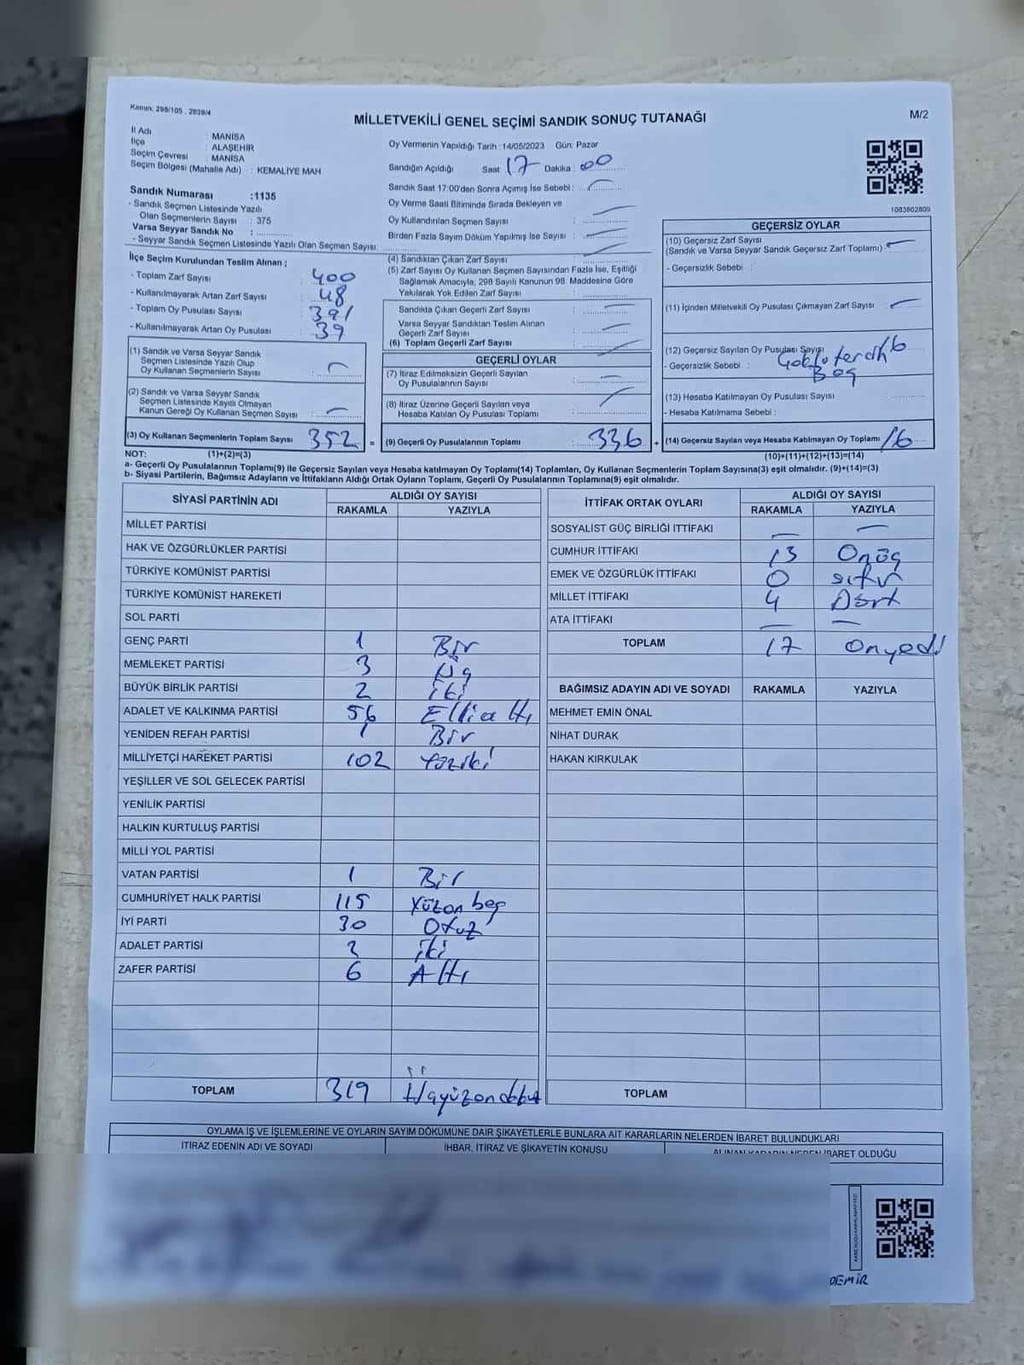 Kanun: 298/105 , 2839/4
MİLLETVEKİLİ GENEL SEÇİMİ SANDIK SONUÇ TUTANAĞI
M/2
İl Adı : MANİSA
İlçe : ALAŞEHİR
Seçim Çevresi : MANİSA
Seçim Bölgesi (Mahalle Adı) : KEMALİYE MAH
Sandık Numarası :1135
- Sandık Seçmen Listesinde Yazılı
Olan Seçmenlerin Sayısı : 375
Varsa Seyyar Sandık No :
- Seyyar Sandık Seçmen Listesinde Yazılı Olan Seçmen Sayısı:
Oy Vermenin Yapıldığı Tarih :14/05/2023 Gün: Pazar
Sandığın Açıldığı Saat 17 Dakika 00
Sandık Saat 17:00'den Sonra Açımış İse Sebebi :
Oy Verme Saati Bitiminde Sırada Bekleyen ve
Oy Kullandırılan Seçmen Sayısı :
Birden Fazla Sayım Döküm Yapılmış İse Sayısı :
1083802809
İlçe Seçim Kurulundan Teslim Alınan ;
- Toplam Zarf Sayısı : 400
- Kullanılmayarak Artan Zarf Sayısı : 48
- Toplam Oy Pusulası Sayısı : 391
- Kullanılmayarak Artan Oy Pusulası : 39
(1) Sandık ve Varsa Seyyar Sandık
Seçmen Listesinde Yazılı Olup
Oy Kullanan Seçmenlerin Sayısı :
(2) Sandık ve Varsa Seyyar Sandık
Seçmen Listesinde Kayıtlı Olmayan
Kanun Gereği Oy Kullanan Seçmen Sayısı :
(3) Oy Kullanan Seçmenlerin Toplam Sayısı : 352
(4) Sandıktan Çıkan Zarf Sayısı :
(5) Zarf Sayısı Oy Kullanan Seçmen Sayısından Fazla İse, Eşitliği
Sağlamak Amacıyla, 298 Sayılı Kanunun 98. Maddesine Göre
Yakılarak Yok Edilen Zarf Sayısı :
Sandıkta Çıkan Geçerli Zarf Sayısı :
Varsa Seyyar Sandıktan Teslim Alınan
Geçerli Zarf Sayısı :
(6) Toplam Geçerli Zarf Sayısı :
GEÇERLİ OYLAR
(7) İtiraz Edilmeksizin Geçerli Sayılan
Oy Pusulalarının Sayısı :
(8) İtiraz Üzerine Geçerli Sayılan veya
Hesaba Katılan Oy Pusulası Toplamı :
= (9) Geçerli Oy Pusulalarının Toplamı : 336
GEÇERSİZ OYLAR
(10) Geçersiz Zarf Sayısı
(Sandık ve Varsa Seyyar Sandık Geçersiz Zarf Toplamı) :
- Geçersizlik Sebebi :
(11) İçinden Milletvekili Oy Pusulası Çıkmayan Zarf Sayısı :
(12) Geçersiz Sayılan Oy Pusulası Sayısı : 16
- Geçersizlik Sebebi : Çoklu tercih
Boş
(13) Hesaba Katılmayan Oy Pusulası Sayısı :
- Hesaba Katılmama Sebebi :
+ (14) Geçersiz Sayılan veya Hesaba Katılmayan Oy Toplamı : 16
NOT: (1)+(2)=(3)
(10)+(11)+(12)+(13)=(14)
a- Geçerli Oy Pusulalarının Toplamı(9) ile Geçersiz Sayılan veya Hesaba katılmayan Oy Toplamı(14) Toplamları, Oy Kullanan Seçmenlerin Toplam Sayısına(3) eşit olmalıdır. (9)+(14)=(3)
b- Siyasi Partilerin, Bağımsız Adayların ve İttifakların Aldığı Ortak Oyların Toplamı, Geçerli Oy Pusulalarının Toplamına(9) eşit olmalıdır.
SİYASİ PARTİNİN ADI ALDIĞI OY SAYISI
RAKAMLA YAZIYLA
MİLLET PARTİSİ
HAK VE ÖZGÜRLÜKLER PARTİSİ
TÜRKİYE KOMÜNİST PARTİSİ
TÜRKİYE KOMÜNİST HAREKETİ
SOL PARTİ
GENÇ PARTİ 1 Bir
MEMLEKET PARTİSİ 3 Üç
BÜYÜK BİRLİK PARTİSİ 2 iki
ADALET VE KALKINMA PARTİSİ 56 Ellialtı
YENİDEN REFAH PARTİSİ 1 Bir
MİLLİYETÇİ HAREKET PARTİSİ 102 Yüziki
YEŞİLLER VE SOL GELECEK PARTİSİ
YENİLİK PARTİSİ
HALKIN KURTULUŞ PARTİSİ
MİLLİ YOL PARTİSİ
VATAN PARTİSİ 1 Bir
CUMHURİYET HALK PARTİSİ 115 Yüzon beş
İYİ PARTİ 30 Otuz
ADALET PARTİSİ 2 iki
ZAFER PARTİSİ 6 Altı
TOPLAM 319 Üçyüzondokuz
İTTİFAK ORTAK OYLARI ALDIĞI OY SAYISI
RAKAMLA YAZIYLA
SOSYALİST GÜÇ BİRLİĞİ İTTİFAKI — —
CUMHUR İTTİFAKI 13 Onüç
EMEK VE ÖZGÜRLÜK İTTİFAKI 0 sıfır
MİLLET İTTİFAKI 4 Dört
ATA İTTİFAKI — —
TOPLAM 17 onyedi
BAĞIMSIZ ADAYIN ADI VE SOYADI RAKAMLA YAZIYLA
MEHMET EMİN ÖNAL
NİHAT DURAK
HAKAN KIRKULAK
TOPLAM
OYLAMA İŞ VE İŞLEMLERİNE VE OYLARIN SAYIM DÖKÜMÜNE DAİR ŞİKAYETLERLE BUNLARA AİT KARARLARIN NELERDEN İBARET BULUNDUKLARI
İTİRAZ EDENİN ADI VE SOYADI İHBAR, İTİRAZ VE ŞİKAYETİN KONUSU ALINAN KARARIN NEDEN İBARET OLDUĞU
DEMİR